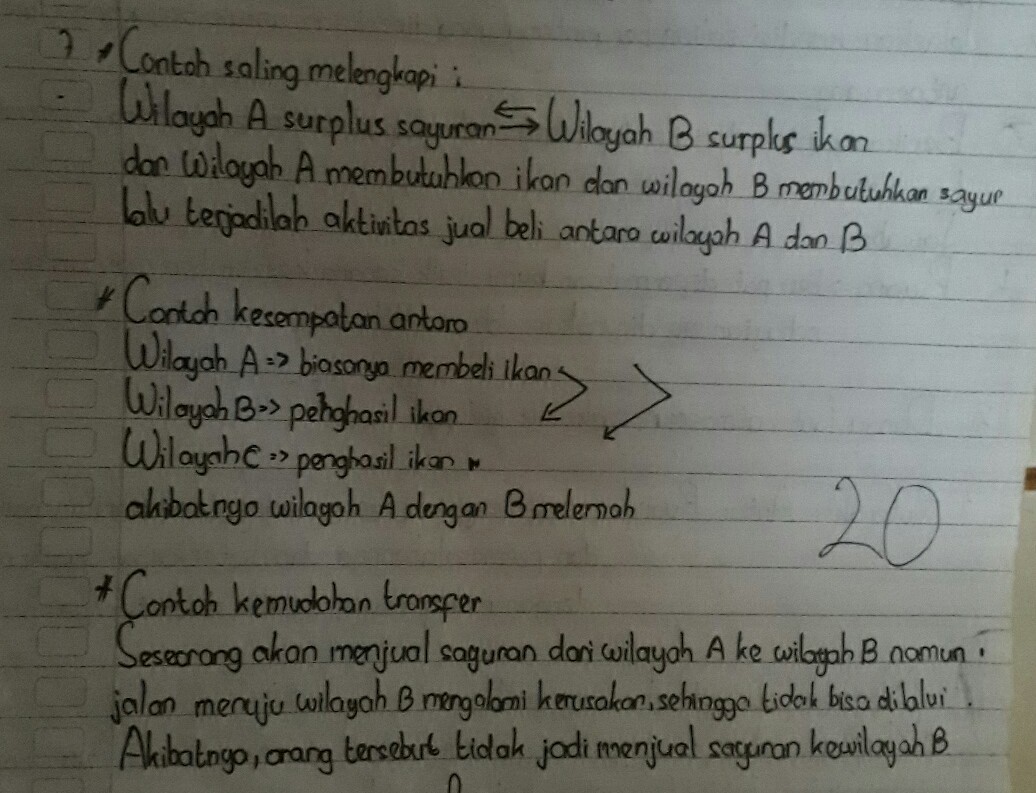 7 * Contoh saling melengkapi :
Wilayah A surplus sayuran ⇆ Wilayah B surplus ikan
dan Wilayah A membutuhkan ikan dan wilayah B membutuhkan sayur
lalu terjadilah aktivitas jual beli antara wilayah A dan B
* Contoh kesempatan antara
Wilayah A => biasanya membeli ikan
Wilayah B => penghasil ikan
Wilayah C => penghasil ikan
akibatnya wilayah A dengan B melemah
20
* Contoh kemudahan transfer
Seseorang akan menjual sayuran dari wilayah A ke wilayah B namun
jalan menuju wilayah B mengalami kerusakan, sehingga tidak bisa dilalui.
Akibatnya, orang tersebut tidak jadi menjual sayuran kewilayah B